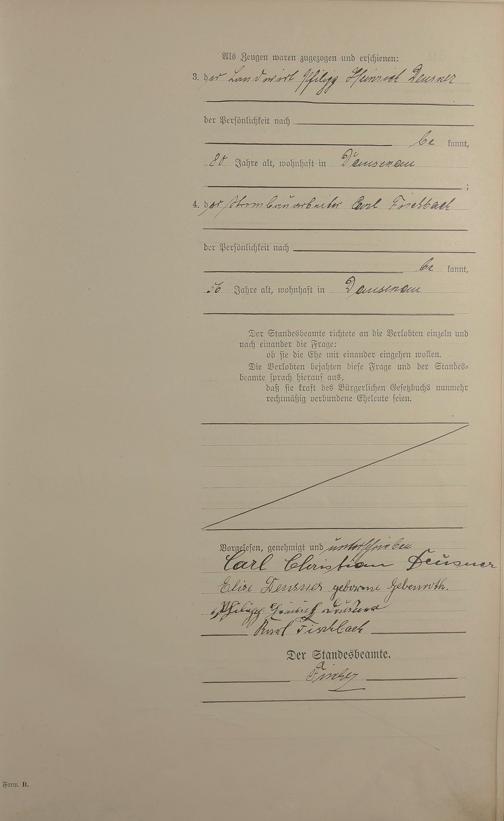 Als Zeugen waren zugezogen und erschienen:
3. der Landwirt Philipp Heinrich Deusner
der Persönlichkeit nach
be kannt,
Jahre alt, wohnhaft in Dausenau
;
4. der Strombauarbeiter Carl Fischbach
der Persönlichkeit nach
be kannt,
56 Jahre alt, wohnhaft in Dausenau
Der Standesbeamte richtete an die Verlobten einzeln und
nach einander die Frage:
ob sie die Ehe mit einander eingehen wollen.
Die Verlobten bejahten diese Frage und der Standes-
beamte sprach hierauf aus,
daß sie kraft des Bürgerlichen Gesetzbuchs nunmehr
rechtmäßig verbundene Eheleute seien.
Vorgelesen, genehmigt und unterschrieben
Carl Christian Deusner
Elise Deusner geborene Gebenroth.
Philipp Heinrich Deusner
Karl Fischbach
Der Standesbeamte.
Form. B.